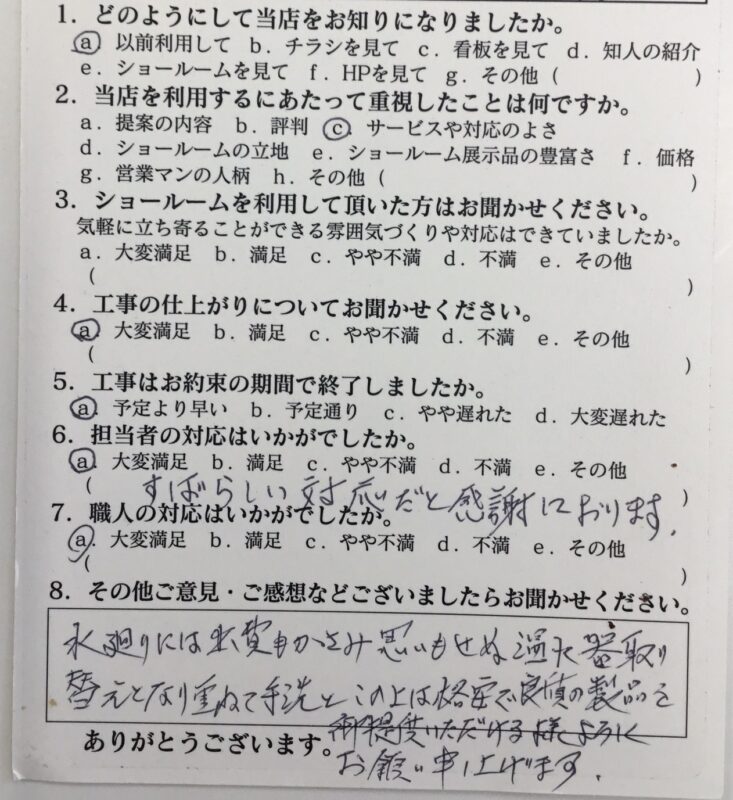 1．どのようにして当店をお知りになりましたか。
a．以前利用して b．チラシを見て c．看板を見て d．知人の紹介
e．ショールームを見て f．HPを見て g．その他（ ）
2．当店を利用するにあたって重視したことは何ですか。
a．提案の内容 b．評判 c．サービスや対応のよさ
d．ショールームの立地 e．ショールーム展示品の豊富さ f．価格
g．営業マンの人柄 h．その他（ ）
3．ショールームを利用して頂いた方はお聞かせください。
気軽に立ち寄ることができる雰囲気づくりや対応はできていましたか。
a．大変満足 b．満足 c．やや不満 d．不満 e．その他
（ ）
4．工事の仕上がりについてお聞かせください。
a．大変満足 b．満足 c．やや不満 d．不満 e．その他
（ ）
5．工事はお約束の期間で終了しましたか。
a．予定より早い b．予定通り c．やや遅れた d．大変遅れた
6．担当者の対応はいかがでしたか。
a．大変満足 b．満足 c．やや不満 d．不満 e．その他
（ すばらしい対応だと感謝しております．）
7．職人の対応はいかがでしたか。
a．大変満足 b．満足 c．やや不満 d．不満 e．その他
（ ）
8．その他ご意見・ご感想などございましたらお聞かせください。
水廻りには出費もかさみ思いもせぬ温水器取り
替えとなり重ねて手洗と この上は格安で良質の製品を
御提供いただける様よろしく
ありがとうございます。
お願い申上げます．